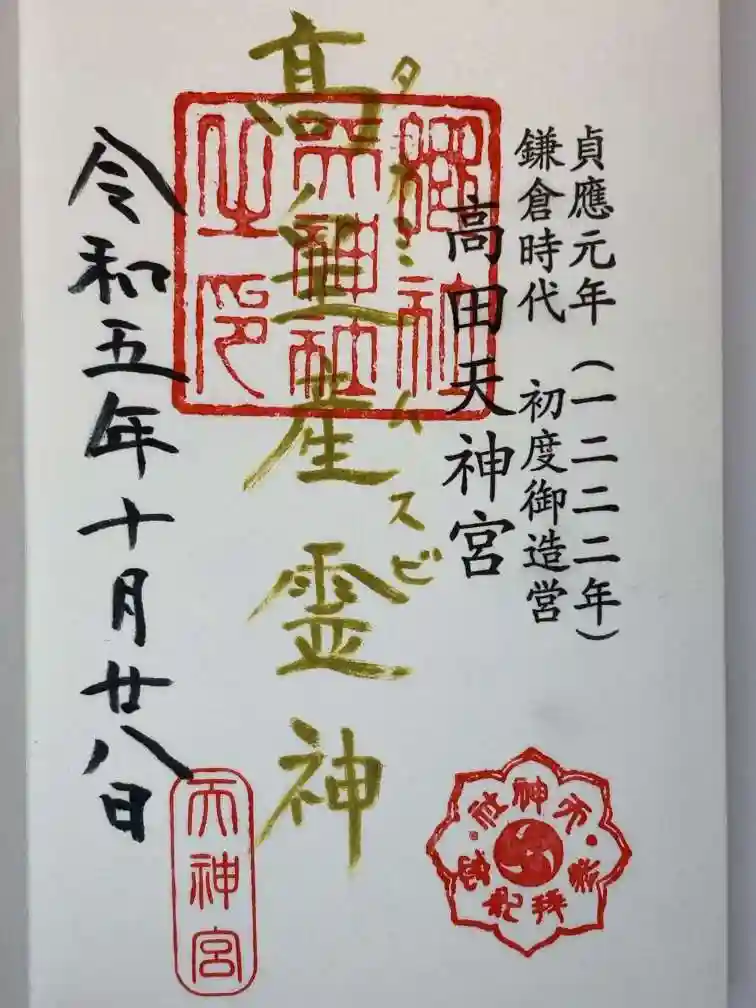 貞應元年（一二二二年）
鎌倉時代　初度御造営
高田天神宮
タカミムスビ
高皇産霊神
郷社
天神社
之印
令和五年十月廿八日
天神宮
天神社
参拝記念